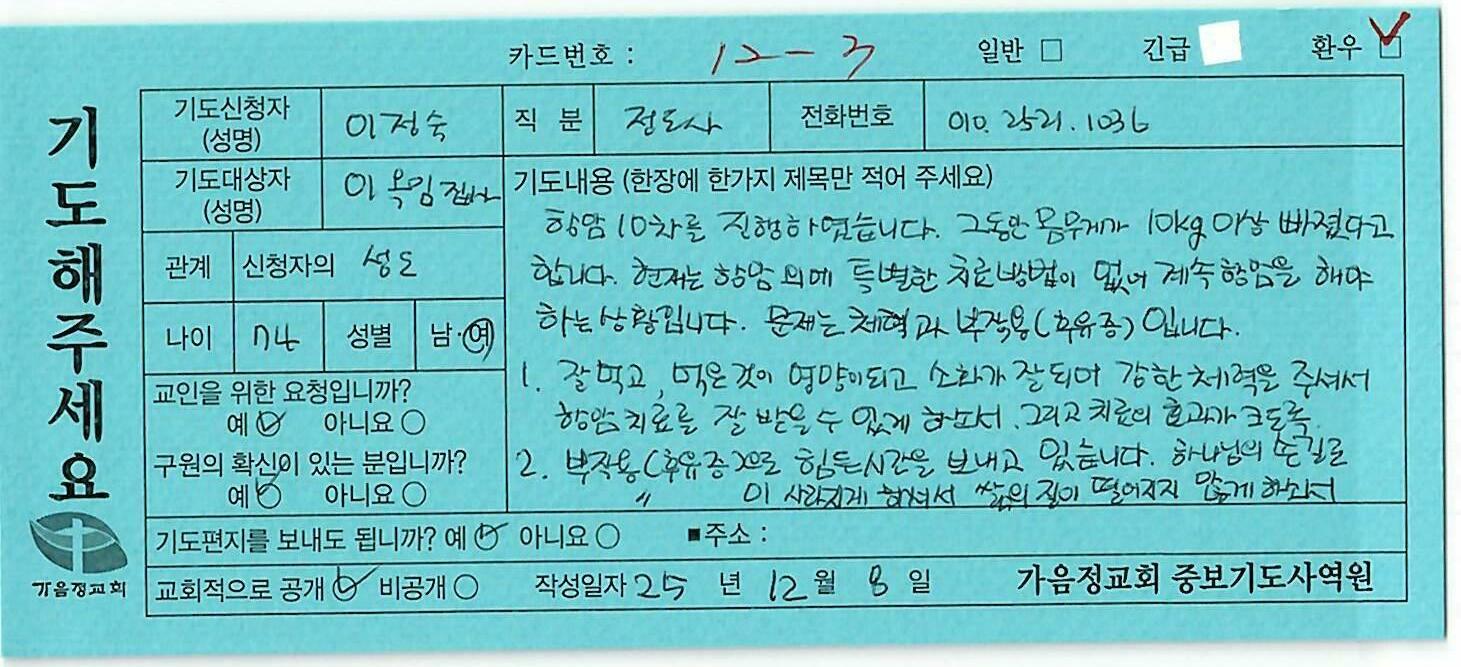 카드번호 : 12-3 일반 □ 긴급 환우 ☑
기도해주세요
가음정교회
기도신청자 (성명) 이정숙 직 분 전도사 전화번호 010. 2521. 1036
기도대상자 (성명) 이옥임 집사
관계 신청자의 성도
나이 74 성별 남·여
교인을 위한 요청입니까?
예 ✓ 아니요 ○
구원의 확신이 있는 분입니까?
예 ✓ 아니요 ○
기도내용 (한장에 한가지 제목만 적어 주세요)
항암 10차를 진행하였습니다. 그동안 몸무게가 10kg 이상 빠졌다고
합니다. 현재는 항암 외에 특별한 치료방법이 없어 계속 항암을 해야
하는 상황입니다. 문제는 체력과 부작용(후유증)입니다.
1. 잘 먹고, 먹은 것이 영양이 되고 소화가 잘 되어 강한 체력을 주셔서
항암치료를 잘 받을 수 있게 하소서. 그리고 치료의 효과가 크도록.
2. 부작용(후유증)으로 힘든 시간을 보내고 있습니다. 하나님의 손길로
〃 이 사라지게 하셔서 삶의 질이 떨어지지 않게 하소서
기도편지를 보내도 됩니까? 예 ✓ 아니요 ○ ■주소 :
교회적으로 공개 ✓ 비공개 ○ 작성일자 25 년 12 월 8 일 가음정교회 중보기도사역원